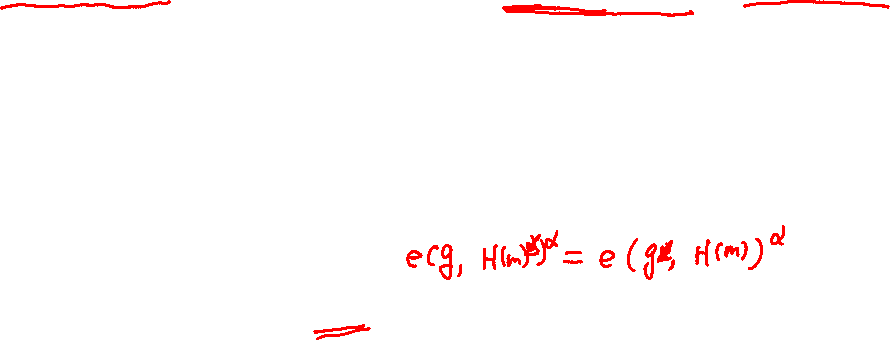 e(g, H(m))^α = e(g, H(m))^α